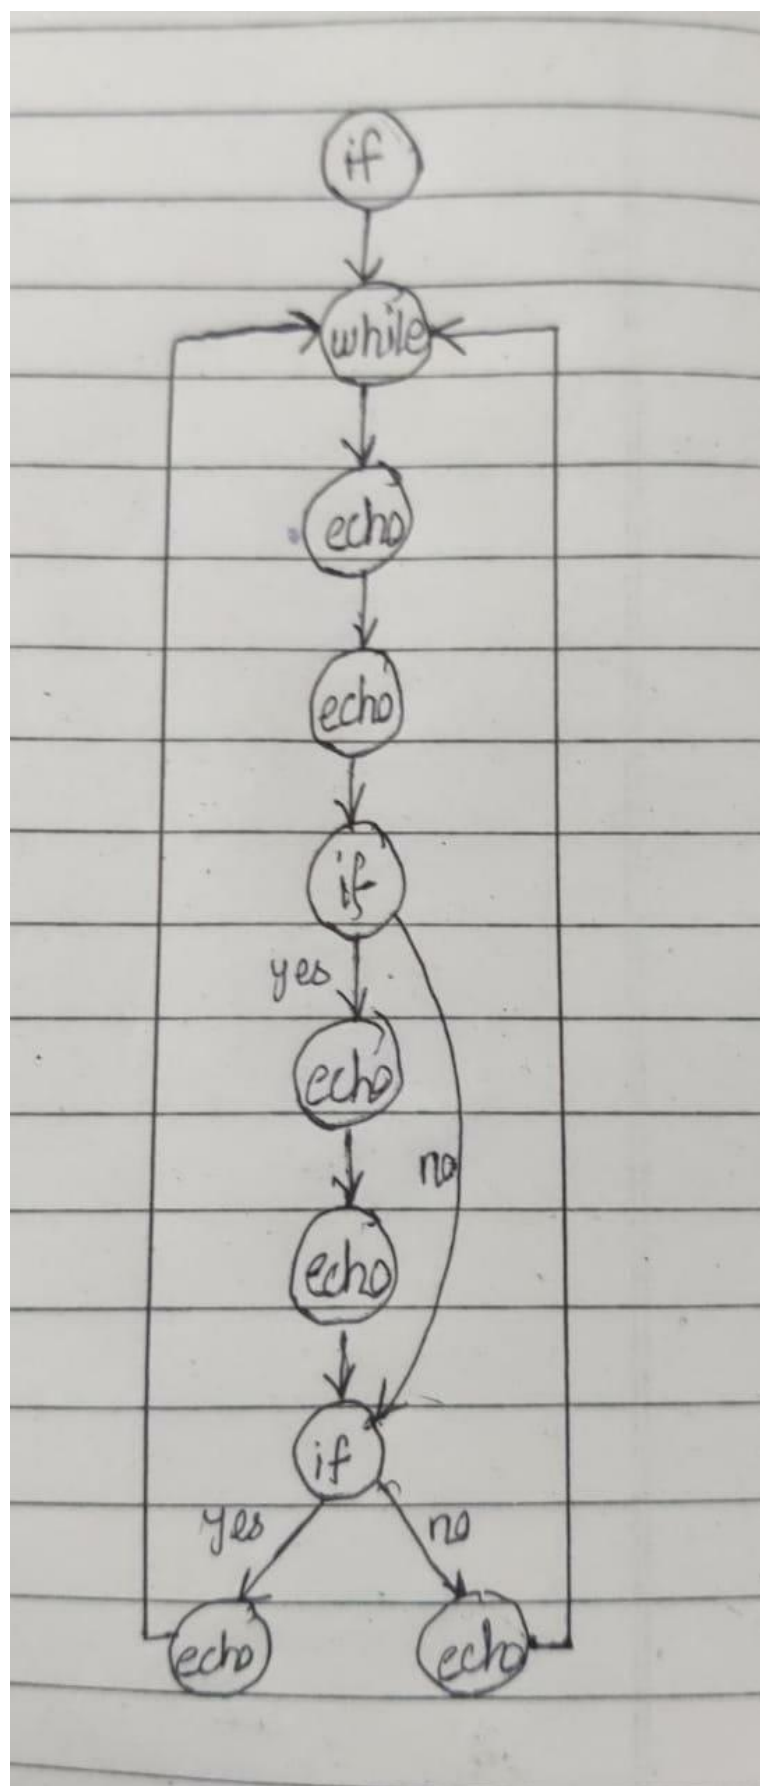 if
while
echo
echo
if
yes
echo
no
echo
if
yes no
echo echo